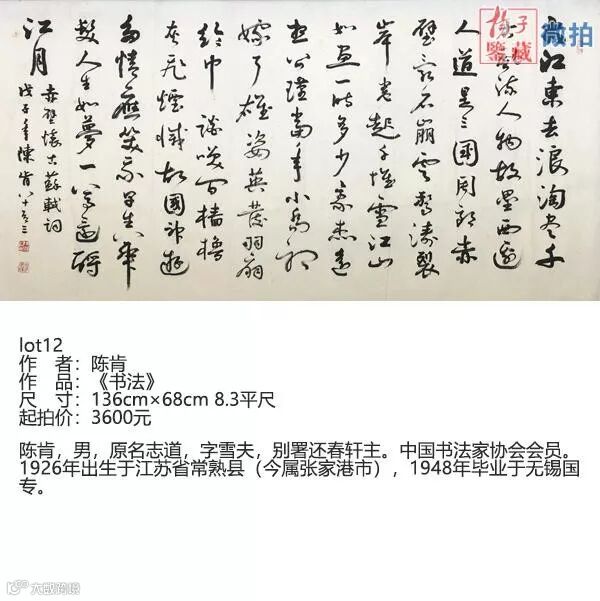 江東去浪淘尽千
流人物故壘西邊
人道是三國周郎赤
壁亂石崩雲驚濤裂
岸卷起千堆雪江山
如畫一時多少豪傑遠
想公瑾當年小喬初
嫁了雄姿英發羽扇
綸巾談笑間檣櫓
灰飛煙滅故國神遊
多情應笑我早生華
髮人生如夢一尊還酹
江月
赤壁懷古蘇軾詞
戊子年陳肯八十又三
子
鑒藏
微拍
lot12
作 者：陈肯
作 品：《书法》
尺 寸：136cm×68cm 8.3平尺
起拍价：3600元
陈肯，男，原名志道，字雪夫，别署还春轩主。中国书法家协会会员。
1926年出生于江苏省常熟县（今属张家港市），1948年毕业于无锡国
专。
大数跨境